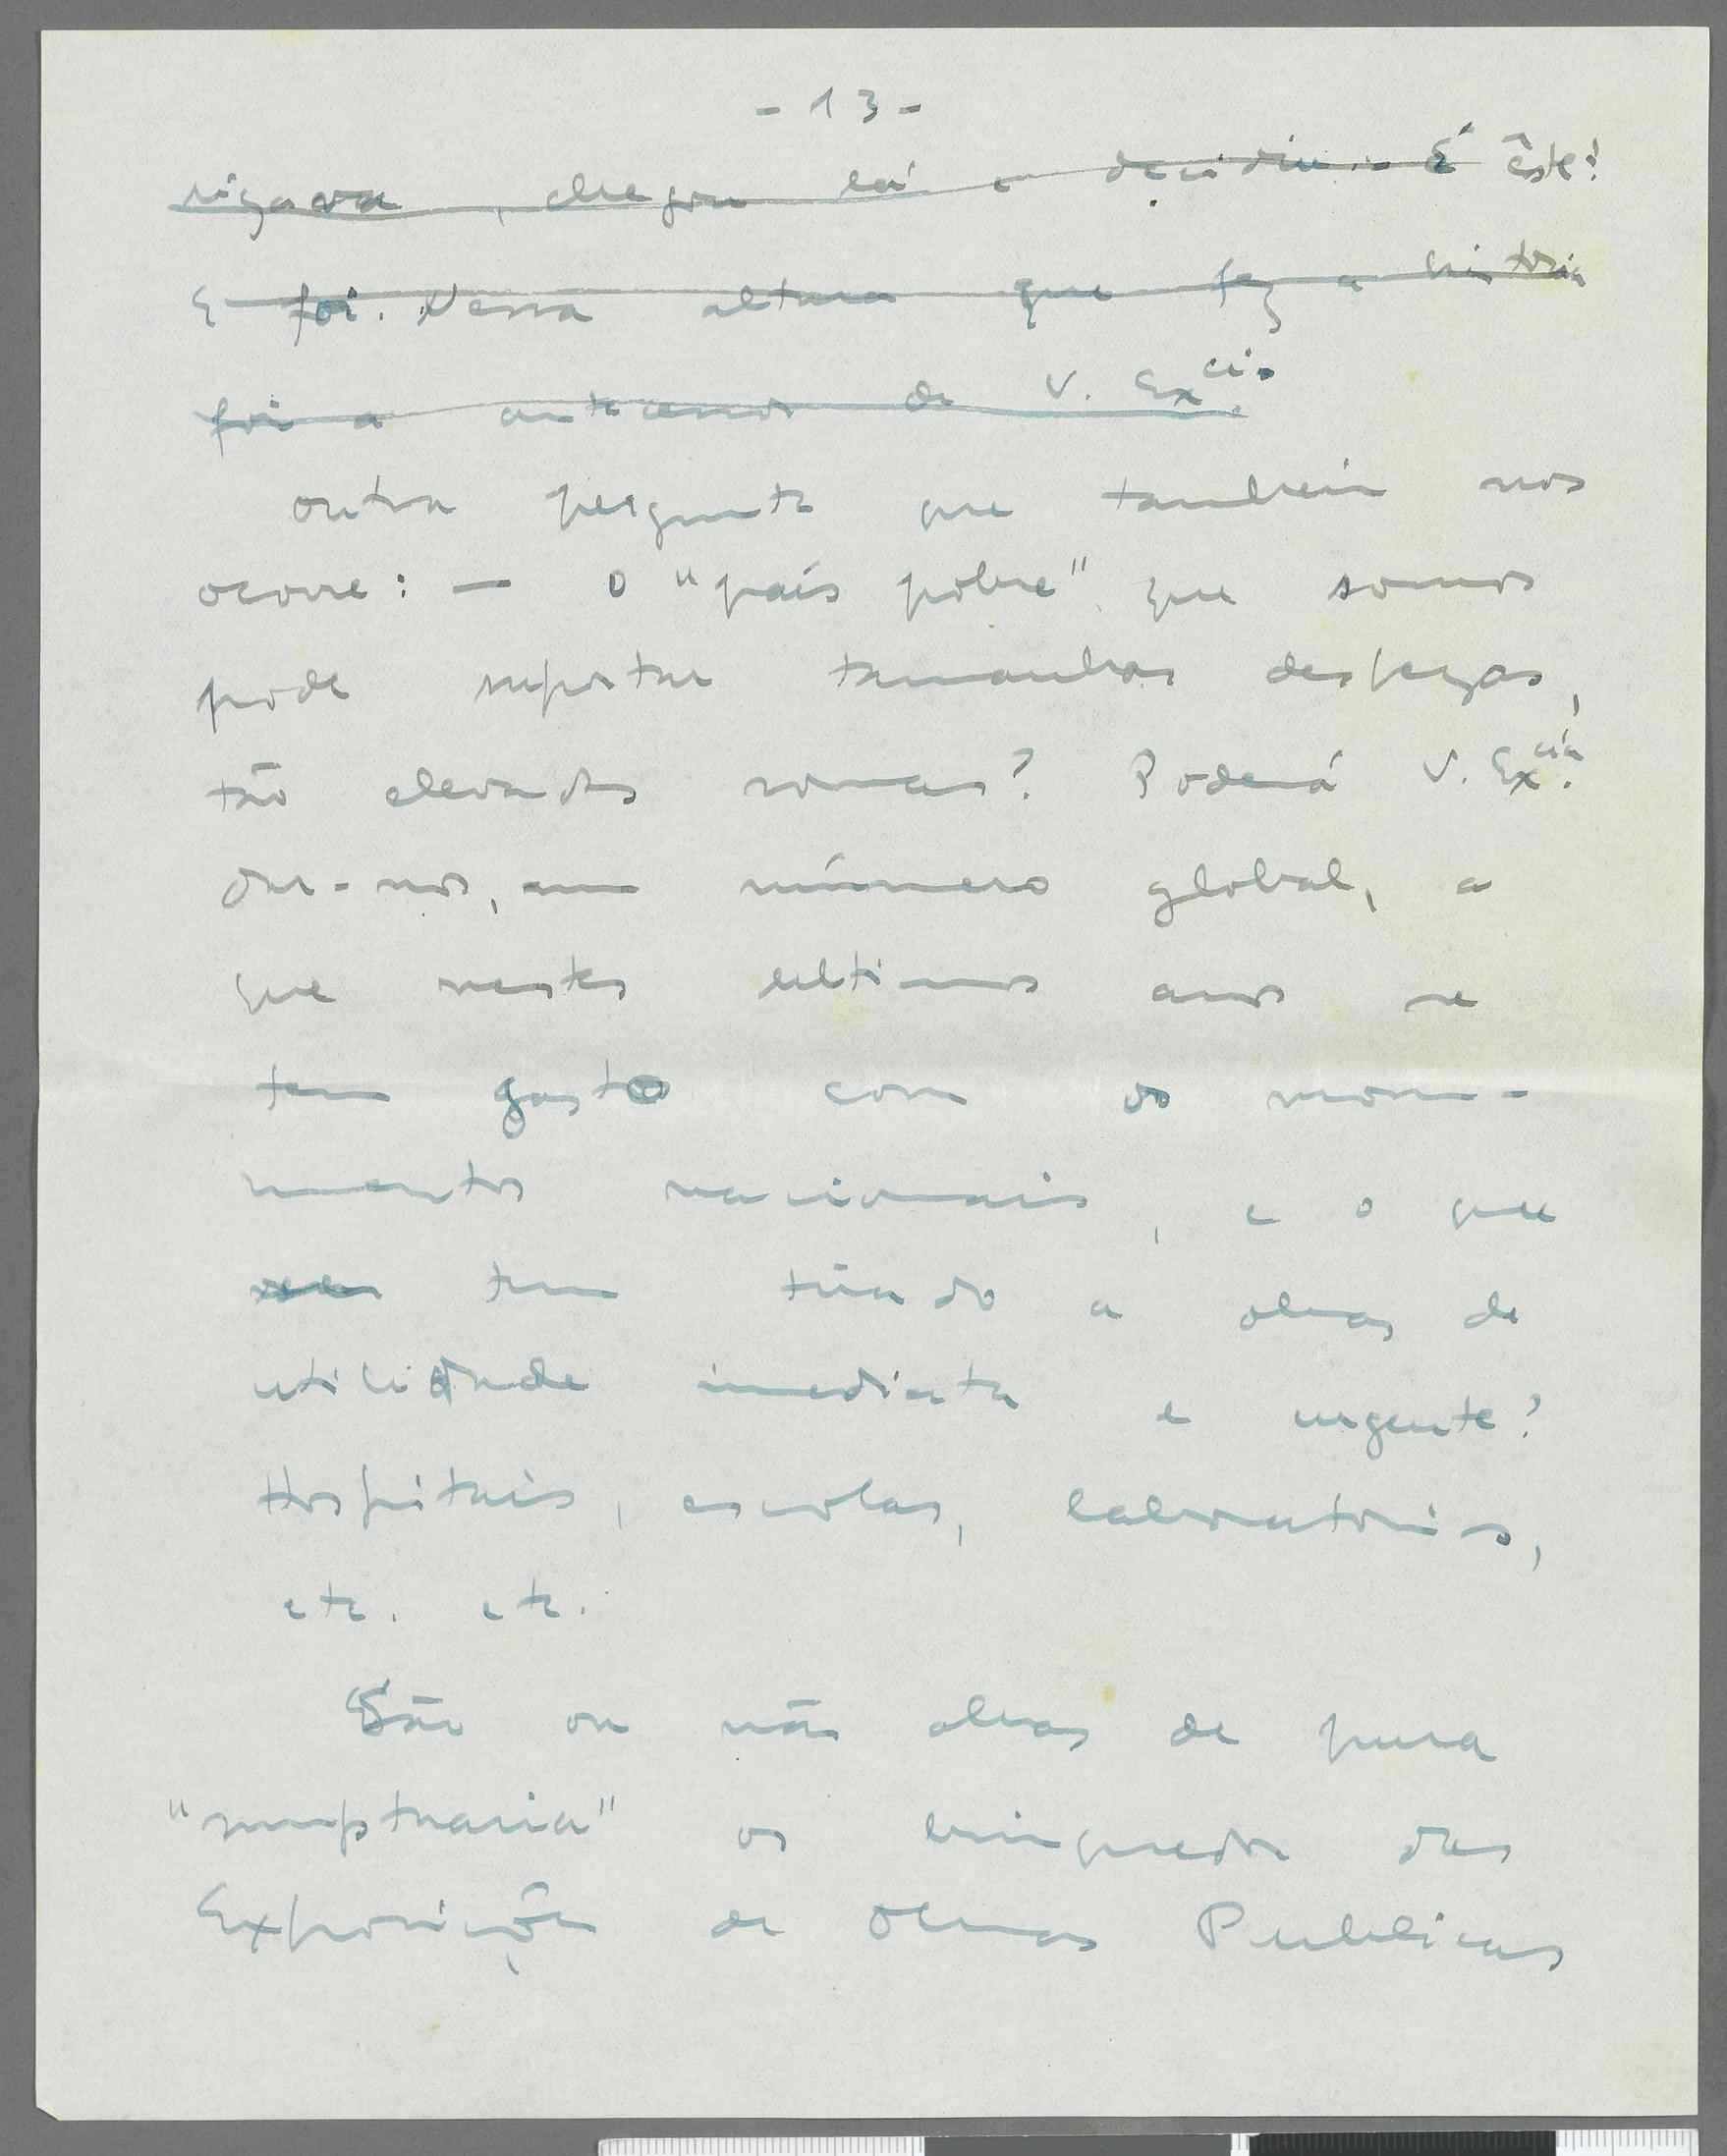 - 13 -
rigava, chegou lá e decidiu: É êste!
E foi. Nessa altura que fez a historia
foi a antecessor de V. Ex.cia
Outra pergunta que tambem nos
ocorre: — O "país pobre" que somos
pode suportar tamanhas despezas,
tão elevadas somas? Poderá V. Ex.cia
dar-nos, um número global, a
que nestes ultimos anos se
tem gasto com os monu-
mentos nacionais, e o que
tem tirado a obras de
utilidade imediata e urgente?
Hospitais, escolas, laboratorios,
etc. etc.
São ou não obras de pura
"sumptuaria" os brinquedos das
Exposições de Obras Publicas